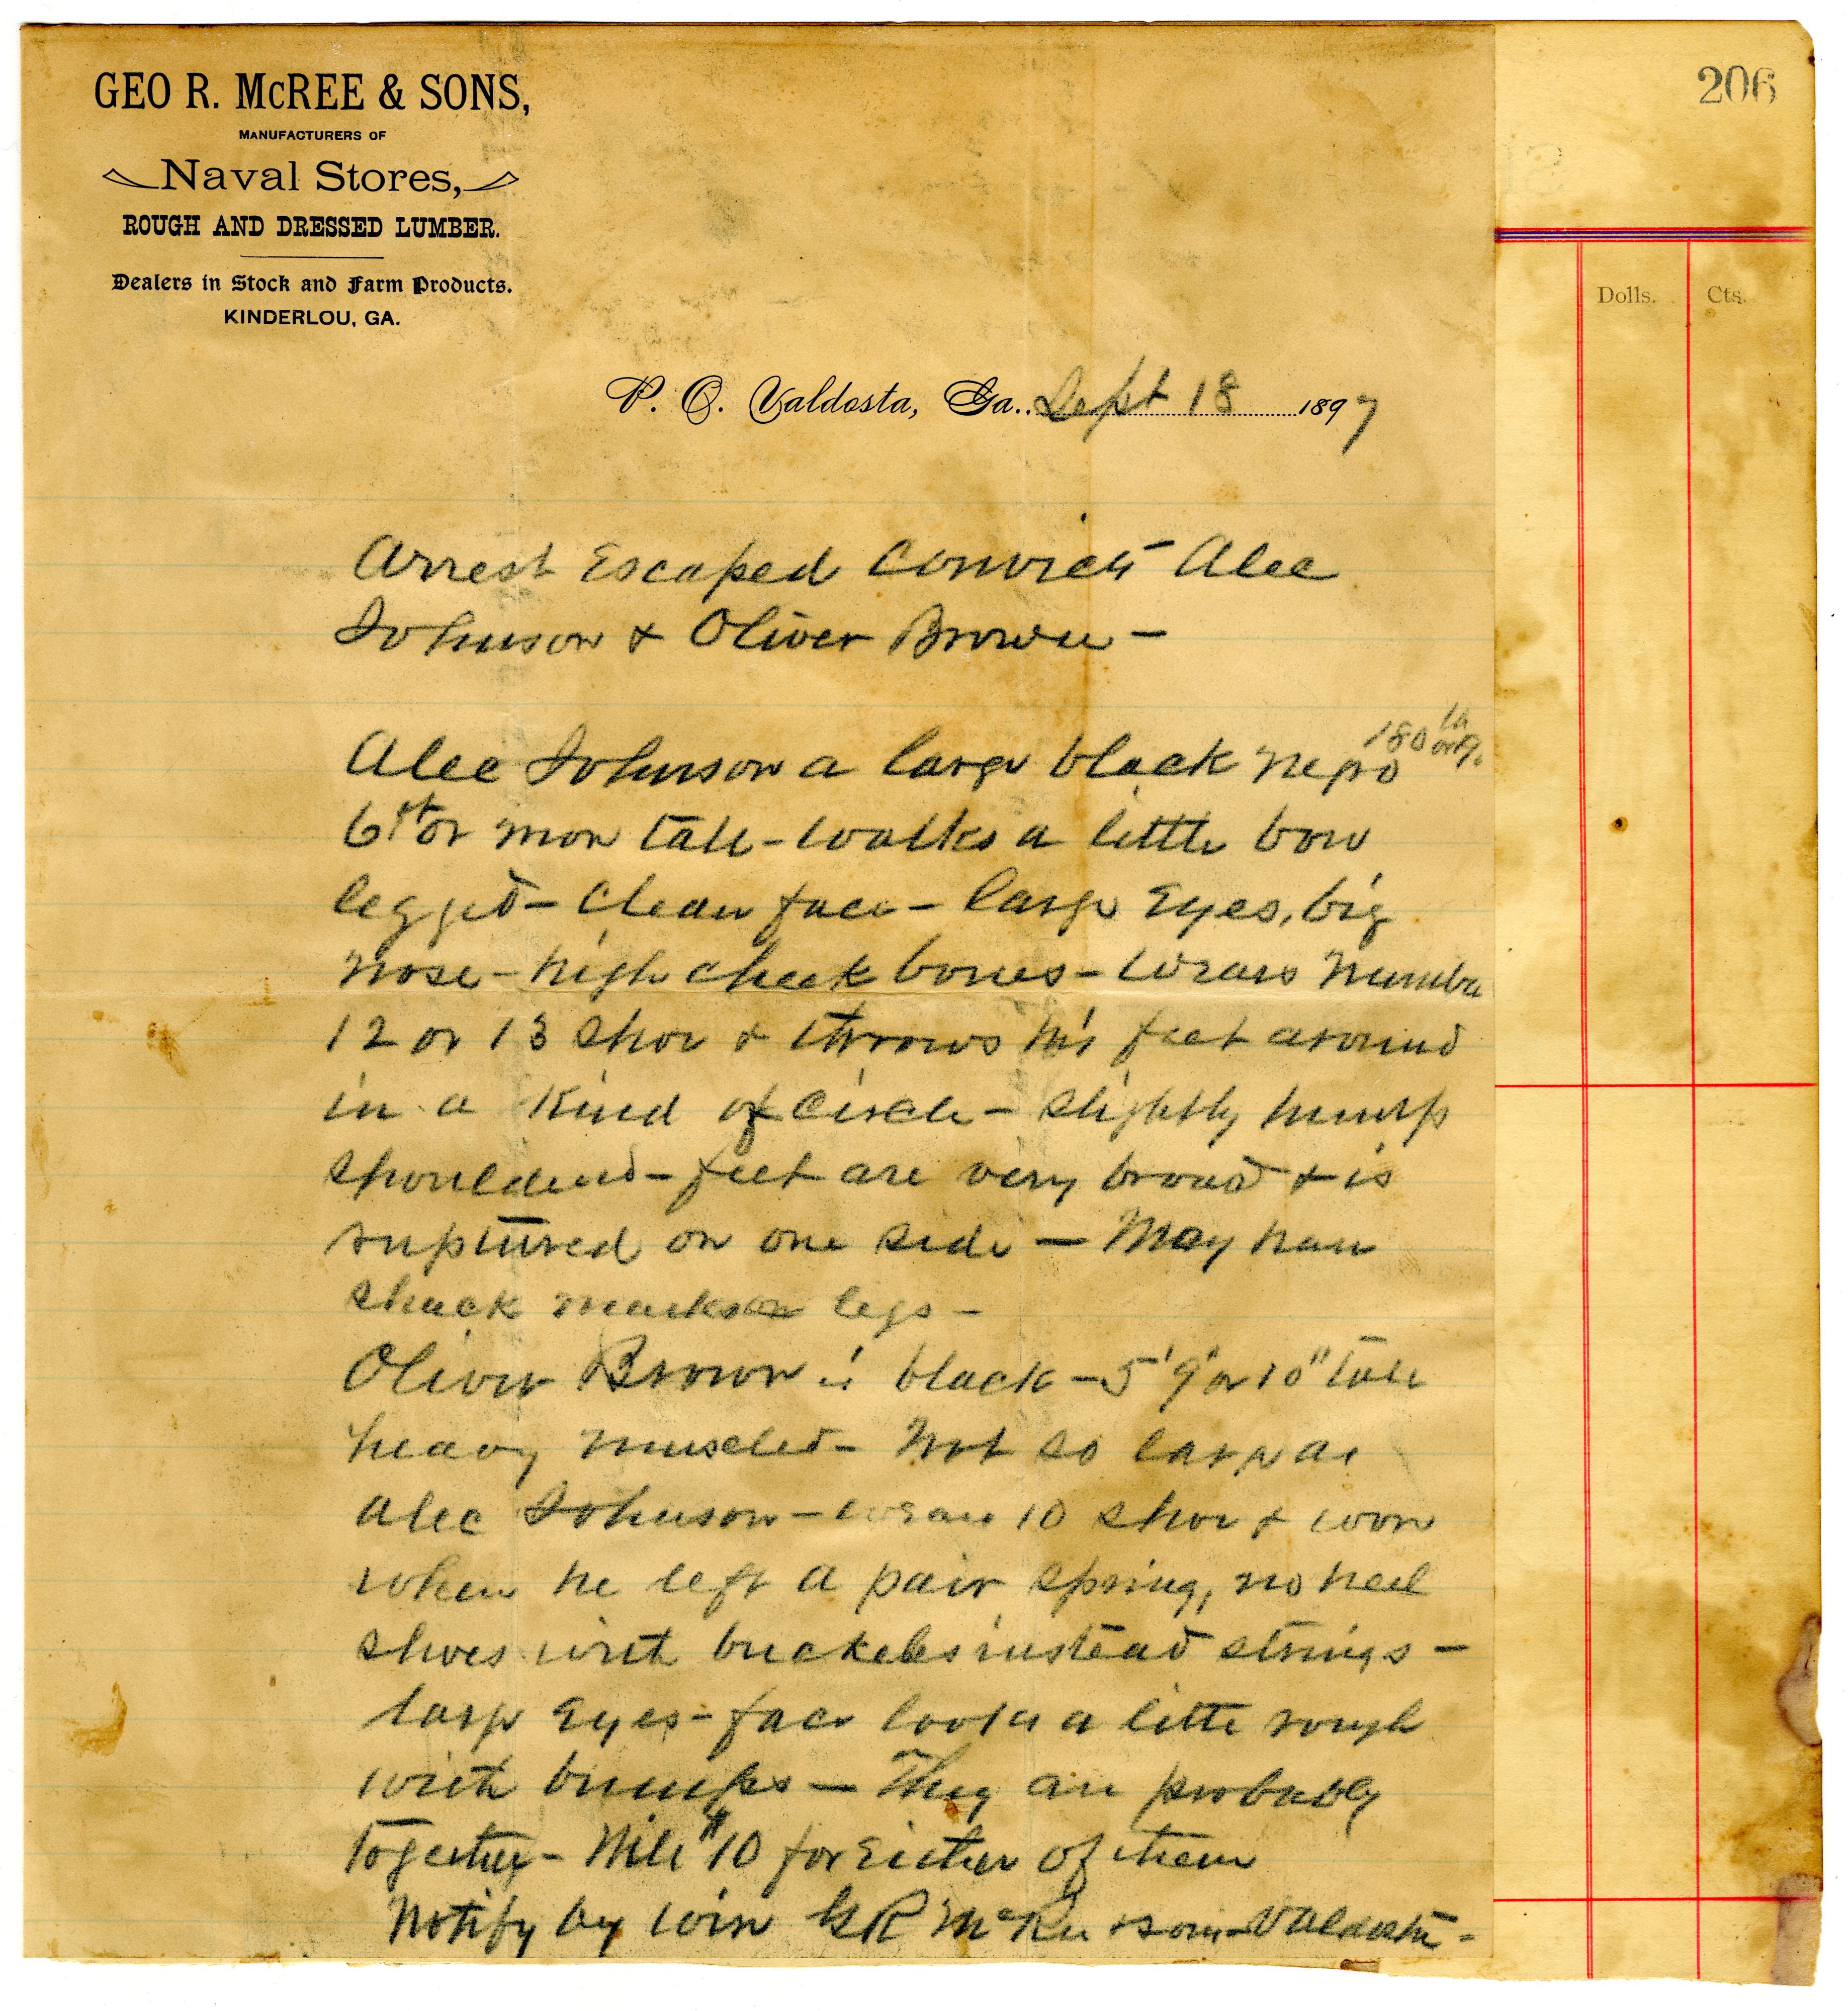 GEO R. McREE & SONS,
MANUFACTURERS OF
Naval Stores,
ROUGH AND DRESSED LUMBER.
Dealers in Stock and Farm Products.
KINDERLOU, GA.
206
Dolls. Cts.
P. O. Valdosta, Ga., Sept 18 1897
Arrest Escaped Convicts Alec
Johnson & Oliver Brown -
Alec Johnson a large black negro 180 lb
6 ft or more tall - walks a little bow
legged - Clean face - large Eyes, big
nose - high cheek bones - Wears number
12 or 13 shoe & throws his feet around
in a Kind of Circle - slightly hump
shouldered - feet are very broad & is
ruptured on one side - May have
shack marks on legs -
Oliver Brown is black - 5' 9" or 10" tall
heavy muscled - Not so large as
Alec Johnson - wears 10 shoe & wore
when he left a pair spring, no heel
shoes with buckeles instead strings -
large Eyes - face looks a little rough
with bumps - They are probably
together - Will $10 for Either of them
Notify by wire G R McRee & Sons Valdosta -